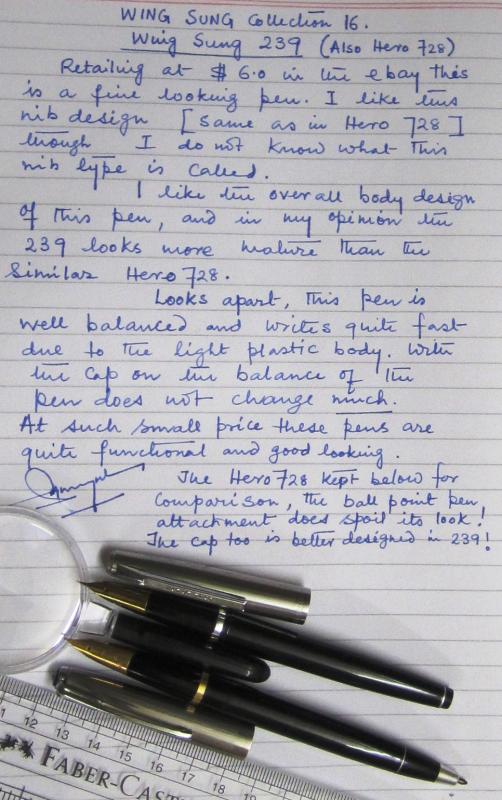 WING SUNG Collection 16.
Wing Sung 239 (Also Hero 728)
Retailing at $ 6.0 in the ebay this
is a fine looking pen. I like this
nib design [same as in Hero 728]
though I do not know what this
nib type is called.
I like the overall body design
of this pen, and in my opinion the
239 looks more mature than the
Similar Hero 728.
Looks apart, this pen is
well balanced and writes quite fast
due to the light plastic body. With
the cap on the balance of the
pen does not change much.
At such small price these pens are
quite functional and good looking.
The Hero 728 kept below for
Comparison, the ball point pen
attachment does spoil its look!
The cap too is better designed in 239!
11 12 13 14 15 16 17 18 19
FABER-CAST